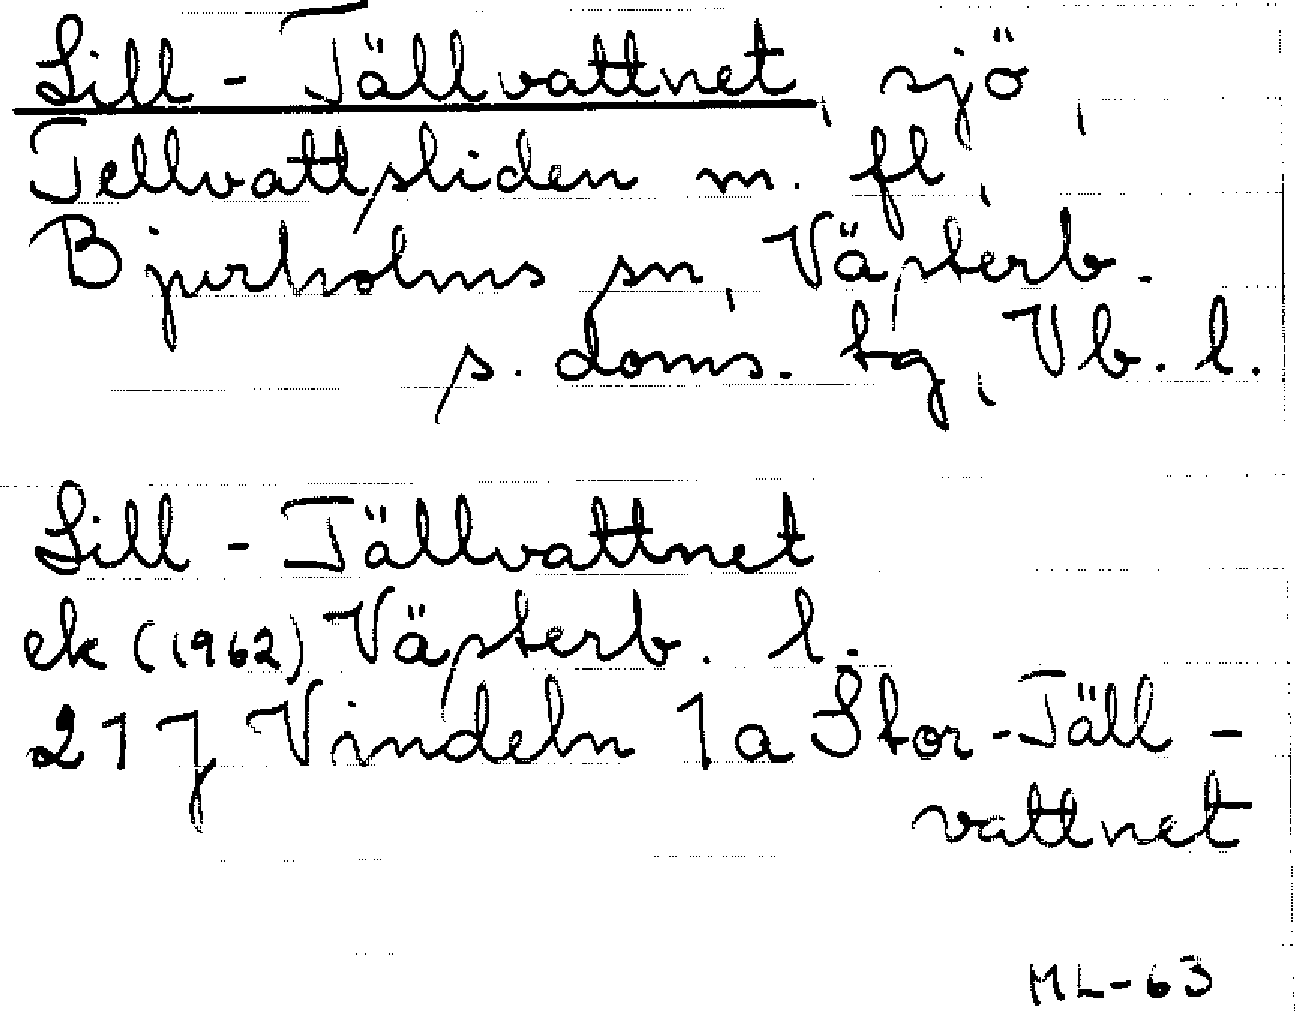 Lill-Tällvattnet, sjö,
Tellvattsliden m. fl.,
Bjurholms sn, Västerb.
s. doms. tg, Vb. l.
Lill-Tällvattnet
ek (1962) Västerb. l.
21 J Vindeln 1a Stor-Täll-
vattnet
ML-63